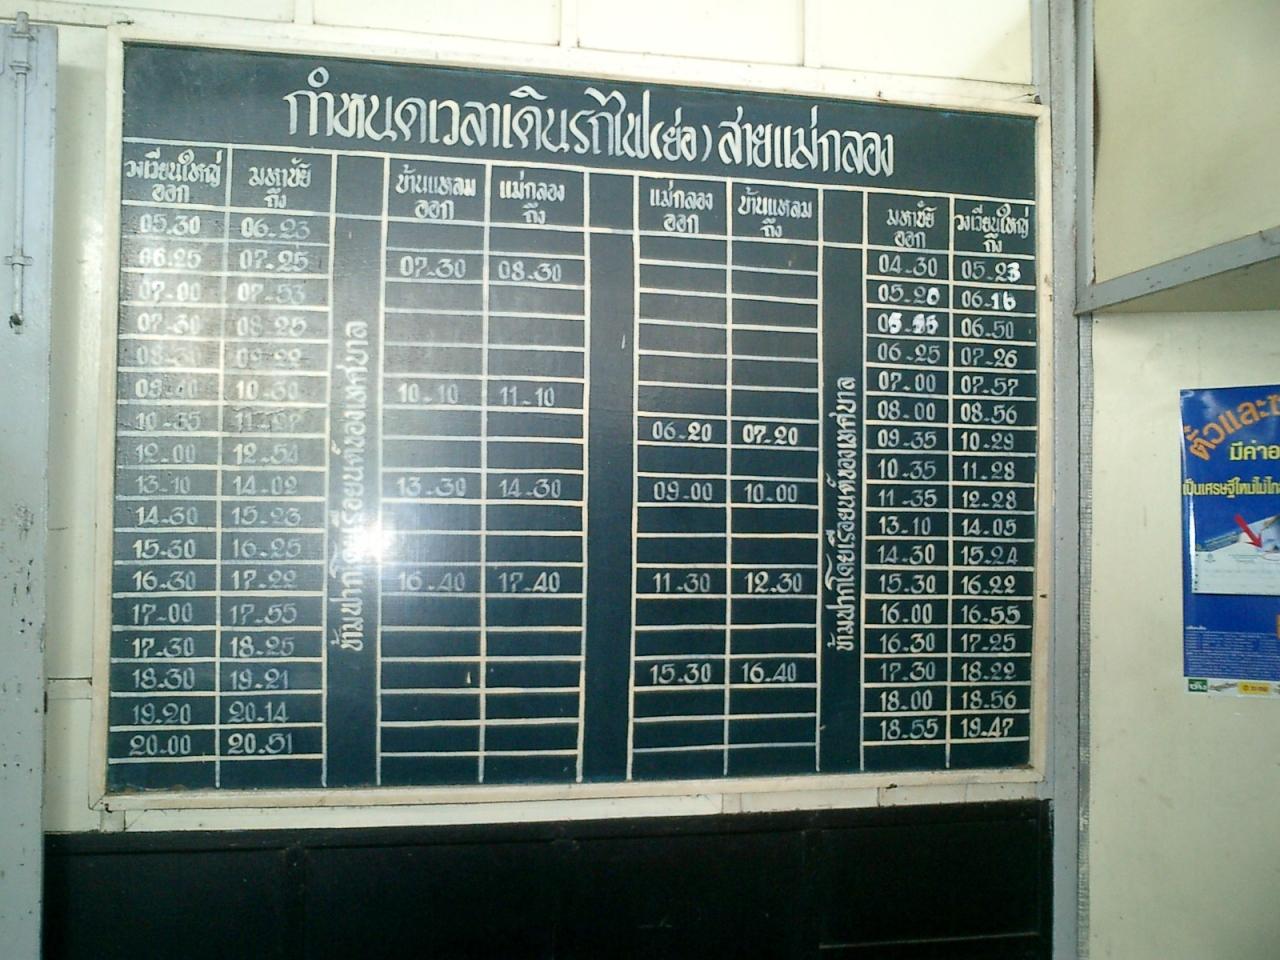 กำหนดเวลาเดินรถไฟ(ย่อ) สายแม่กลอง
วงเวียนใหญ่ ออก มหาชัย ถึง บ้านแหลม ออก แม่กลอง ถึง แม่กลอง ออก บ้านแหลม ถึง มหาชัย ออก วงเวียนใหญ่ ถึง
ข้ามฟากโดยเรือยนต์ของเทศบาล
ข้ามฟากโดยเรือยนต์ของเทศบาล
05.30 06-23
06.25 07.25 07-30 08-30 04-30 05-23
07-00 07-53 05-20 06-16
07-30 08-25 06-50
06-25 07-26
10-30 10-10 11-10 07-00 07-57
10-35 08-00 08-56
12-00 12-54 06-20 07-20 09-35 10-29
13-10 14-02 13-30 14-30 10-35 11-28
14-30 15-23 09-00 10-00 11-35 12-28
15-30 16-25 13-10 14-05
16-30 17-22 16-40 17-40 14-30 15-24
17-00 17-55 11-30 12-30 15-30 16-22
17-30 18-25 16-00 16-55
18-30 19-21 16-30 17-25
19-20 20-14 15-30 16-40 17-30 18-22
20-00 20-51 18-00 18-56
18-55 19-47
มีค่า